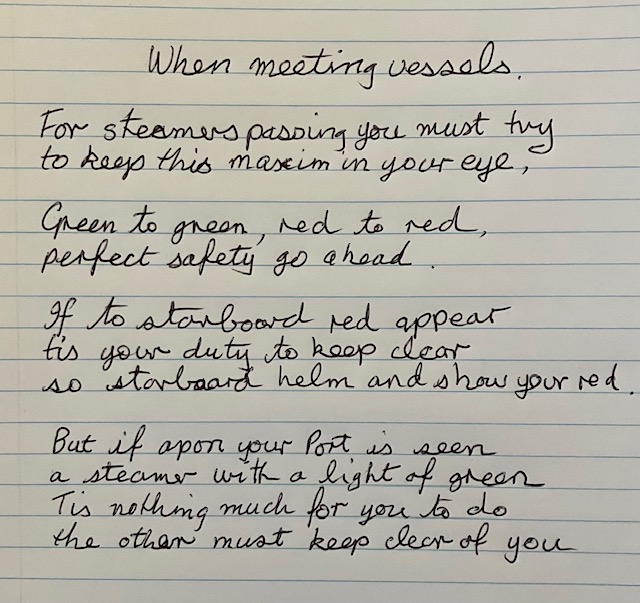 When meeting vessels.
For steamers passing you must try
to keep this maxim in your eye,
Green to green, red to red,
perfect safety go ahead.
If to starboard red appear
tis your duty to keep clear
so starbaard helm and show your red.
But if apon your Port is seen
a steamer with a light of green
Tis nothing much for you to do
the other must keep clear of you